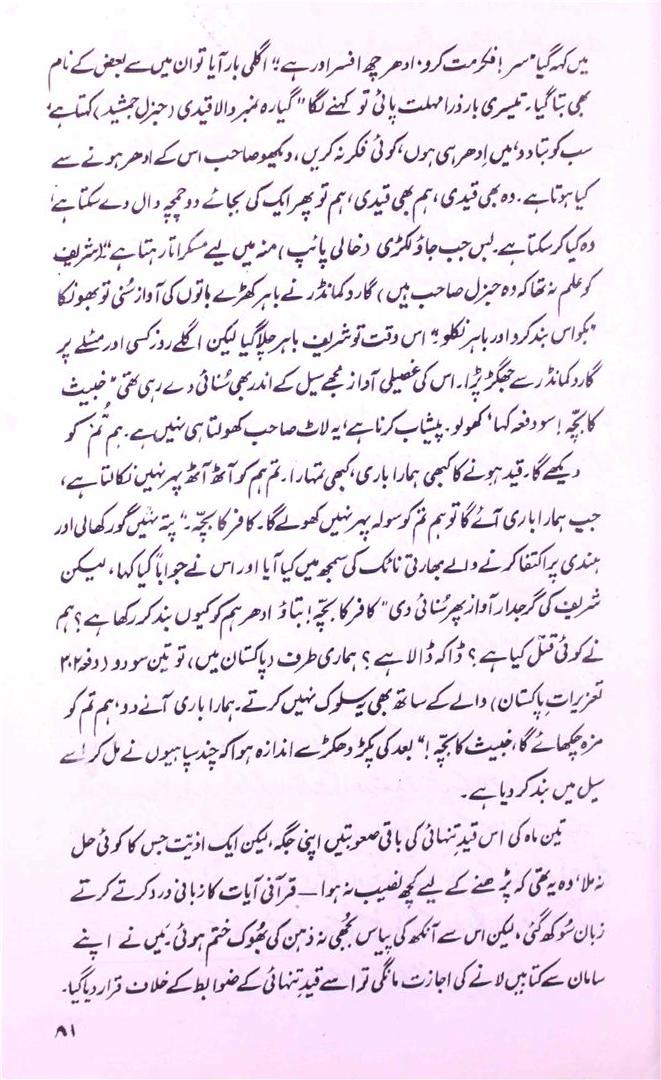 میں کہہ گیا "سر! فکر مت کرو، ادھر چھ افسر اور ہے!" اگلی بار آیا تو ان میں سے بعض کے نام
بھی بتا گیا۔ تیسری بار ذرا مہلت پائی تو کہنے لگا "گیارہ نمبر والا قیدی (جنرل جمشید) کہتا ہے
سب کو بتا دو، میں ادھر ہی ہوں، کوئی فکر نہ کریں، دیکھو صاحب اس کے ادھر ہونے سے
کیا ہوتا ہے۔ وہ بھی قیدی، ہم بھی قیدی، ہم تو پھر ایک کی بجائے دو چمچہ دال دے سکتا ہے،
وہ کیا کر سکتا ہے۔ بس جب جاؤ لکڑی (خالی پائپ) منہ میں لیے مسکراتا رہتا ہے" (شریف
کو علم نہ تھا کہ وہ جنرل صاحب ہیں) گارد کمانڈر نے باہر کھڑے باتوں کی آواز سُنی تو بھونکا
"بکواس بند کرد اور باہر نکلو!" اس وقت تو شریف باہر چلا گیا لیکن اگلے روز کسی اور مسئلے پر
گارد کمانڈر سے جھگڑ پڑا۔ اس کی غصیلی آواز مجھے سیل کے اندر بھی سُنائی دے رہی تھی، "خبیث
کا بچّہ! سو دفعہ کہا، کھولو۔ پیشاب کرنا ہے، یہ لاٹ صاحب کھولتا ہی نہیں ہے۔ ہم تُم کو
دیکھے گا۔ قید ہونے کا کبھی ہمارا باری، کبھی تمہارا۔ تم ہم کو آٹھ آٹھ پہر نہیں نکالتا ہے،
جب ہمارا باری آئے گا تو ہم تم کو سولہ پہر نہیں کھولے گا۔ کافر کا بچّہ۔" پتہ نہیں گورکھالی اور
ہندی پر اکتفا کرنے والے بھارتی نائک کی سمجھ میں کیا آیا اور اس نے جواباً کیا کہا، لیکن
شریف کی گرجدار آواز پھر سُنائی دی "کافر کا بچّہ! بتاؤ ادھر ہم کو کیوں بند کر رکھا ہے؟ ہم
نے کوئی قتل کیا ہے؟ ڈاکہ ڈالا ہے؟ ہماری طرف (پاکستان میں) تو تین سو دو (دفعہ ۳۰۲
تعزیراتِ پاکستان) والے کے ساتھ بھی یہ سلوک نہیں کرتے۔ ہمارا باری آنے دو، ہم تم کو
مزہ چکھائے گا، خبیث کا بچّہ!" بعد کی پکڑ دھکڑ سے اندازہ ہوا کہ چند سپاہیوں نے مل کر اسے
سیل میں بند کر دیا ہے۔
تین ماہ کی اس قیدِ تنہائی کی باقی صعوبتیں اپنی جگہ، لیکن ایک اذیّت جس کا کوئی حل
نہ ملا، وہ یہ تھی کہ پڑھنے کے لیے کچھ نصیب نہ ہوا — قرآنی آیات کا زبانی ورد کرتے کرتے
زبان سُوکھ گئی، لیکن اس سے آنکھ کی پیاس بجھی نہ ذہن کی بھُوک ختم ہوئی۔ میں نے اپنے
سامان سے کتابیں لانے کی اجازت مانگی تو اسے قیدِ تنہائی کے ضوابط کے خلاف قرار دیا گیا۔
۸۱